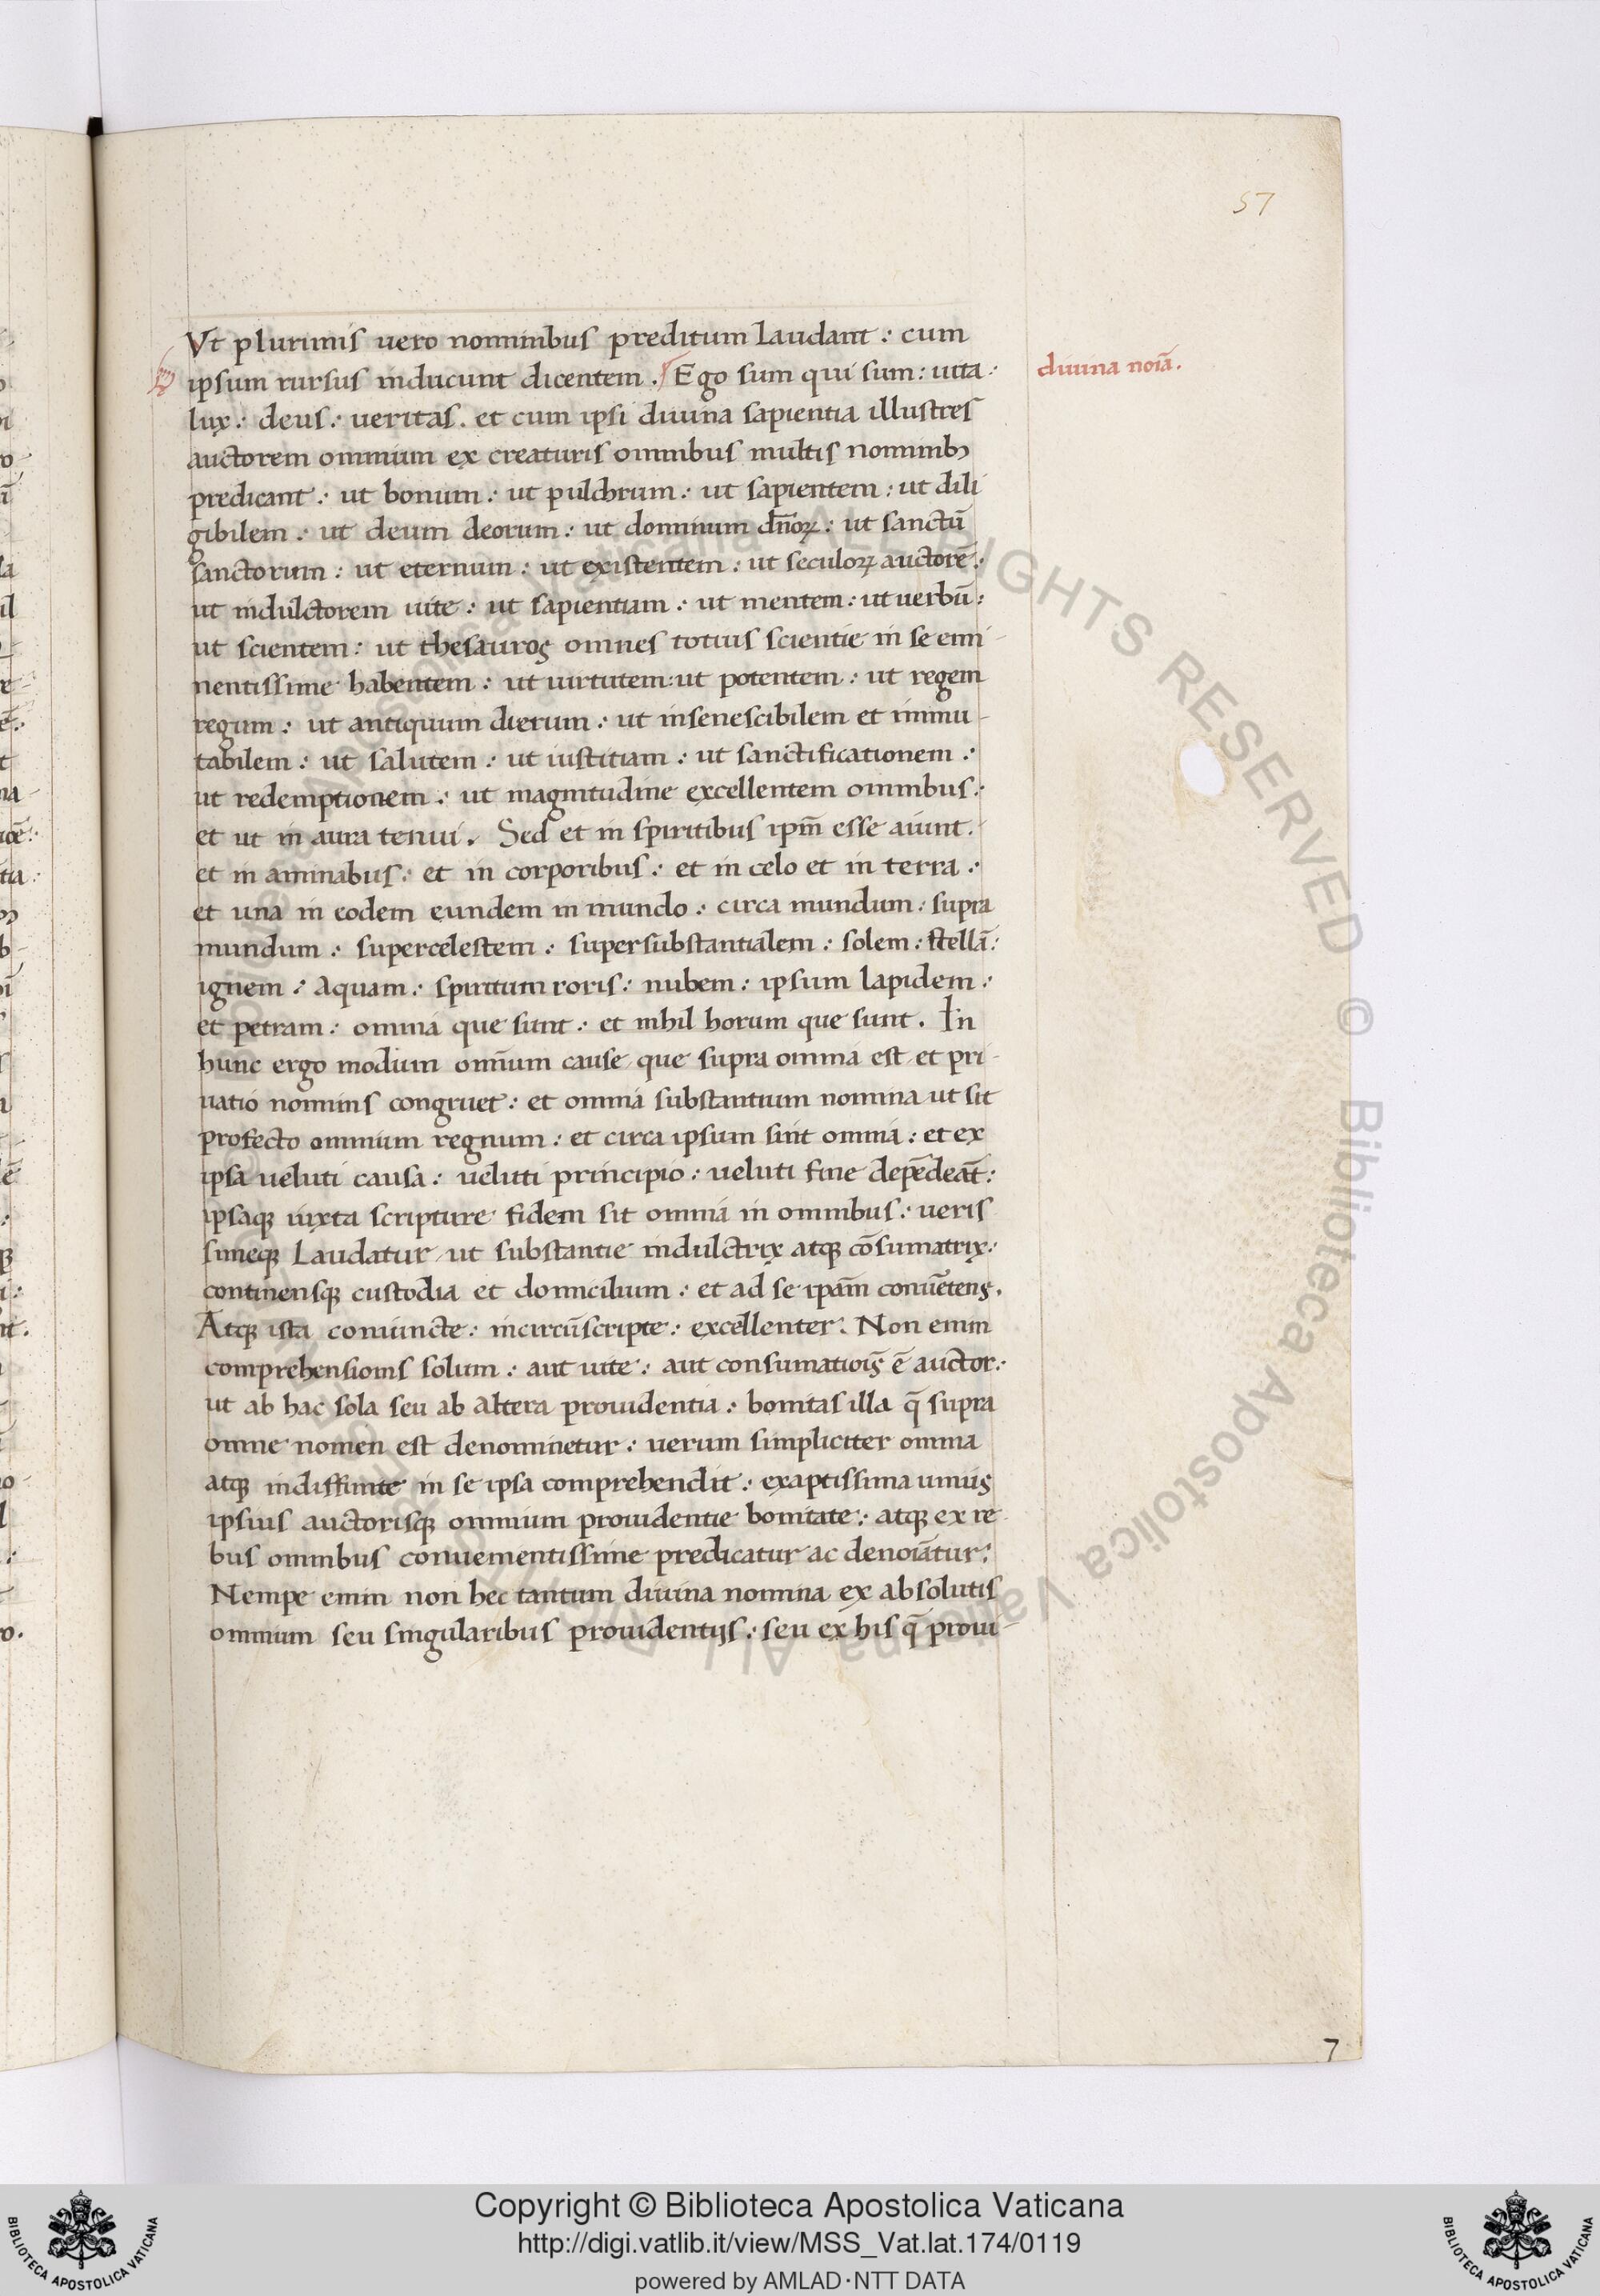 57
Vt plurimis uero nominibus preditum laudant : cum
ipsum rursus inducunt dicentem . Ego sum qui sum : uita :
divina noiā.
lux : deus : veritas . et cum ipsi diuina sapientia illustres
auctorem omnium ex creaturis omnibus multis nominibꝫ
predicant : ut bonum : ut pulchrum : ut sapientem : ut dili
gibilem : ut deum deorum : ut dominum dn̄oꝝ : ut sanctū
sanctorum : ut eternum : ut existentem : ut seculoꝝ auctorē :
ut indulctorem uite : ut sapientiam : ut mentem : ut uerbū :
ut scientem : ut thesauros omnes totius scientie in se emi-
nentissime habentem : ut uirtutem : ut potentem : ut regem
regum : ut antiquum dierum : ut insenescibilem et immu-
tabilem : ut salutem : ut iustitiam : ut sanctificationem :
ut redemptionem : ut magnitudine excellentem omnibus :
et ut in aura tenui . Sed et in spiritibus ipm̄ esse aiunt .
et in aminabus : et in corporibus : et in celo et in terra :
et una in eodem eundem in mundo : circa mundum : supra
mundum : supercelestem : supersubstantialem : solem : stellā :
ignem : aquam : spiritum roris : nubem : ipsum lapidem :
et petram : omnia que sunt : et nihil horum que sunt . In
hunc ergo modum omīum cause que supra omnia est et pri-
uatio nominis congruet : et omnia substantium nomina ut sit
profecto omnium regnum : et circa ipsum sint omnia : et ex
ipsa veluti causa : ueluti principio : ueluti fine depēdeāt :
ipsaqꝫ iuxta scripture fidem sit omnia in omnibus : veris
simeqꝫ laudatur ut substantie indulctrix atqꝫ cōsumatrix :
continensqꝫ custodia et domicilium : et ad se ipam̄ conuētens .
Atqꝫ ista coniuncte : incircūscripte : excellenter . Non enim
comprehensionis solum : aut uite : aut consumatiois̄ ē auctor :
ut ab hac sola seu ab altera prouidentia : bonitas illa q̄ supra
omne nomen est denominetur : uerum simpliciter omnia
atqꝫ indiffinite in se ipsa comprehendit : exaptissima unius
ipsius auctorisqꝫ omnium prouidentie bonitate : atqꝫ ex re-
bus omnibus conuenientissime predicatur ac denoiātur :
Nempe enim non hec tantum diuina nomina ex absolutis
omnium seu singularibus prouidentijs : seu ex his q̄ proui-
7
Copyright © Biblioteca Apostolica Vaticana
http://digi.vatlib.it/view/MSS_Vat.lat.174/0119
powered by AMLAD·NTT DATA
BIBLIOTECA APOSTOLICA VATICANA
BIBLIOTECA APOSTOLICA VATICANA